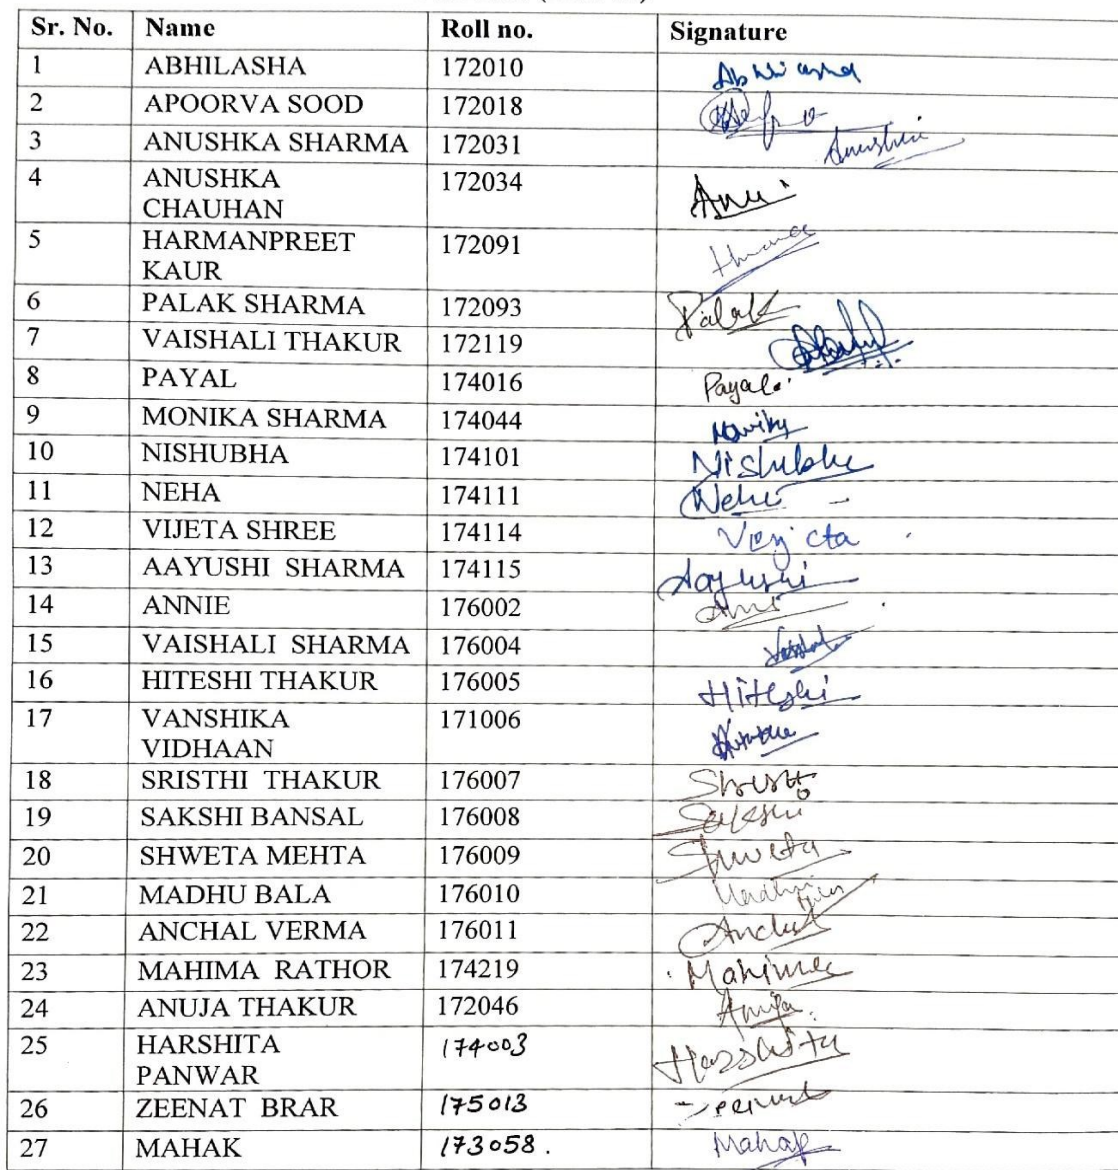 Sr. No. Name Roll no. Signature
1 ABHILASHA 172010 Abhilasha
2 APOORVA SOOD 172018
3 ANUSHKA SHARMA 172031
4 ANUSHKA 172034 Anu
CHAUHAN
5 HARMANPREET 172091
KAUR
6 PALAK SHARMA 172093 Palak
7 VAISHALI THAKUR 172119
8 PAYAL 174016 Payal
9 MONIKA SHARMA 174044
10 NISHUBHA 174101 Nishubha
11 NEHA 174111 Neha
12 VIJETA SHREE 174114
13 AAYUSHI SHARMA 174115 Aayushi
14 ANNIE 176002
15 VAISHALI SHARMA 176004
16 HITESHI THAKUR 176005 Hiteshi
17 VANSHIKA 171006
VIDHAAN
18 SRISTHI THAKUR 176007
19 SAKSHI BANSAL 176008 Sakshi
20 SHWETA MEHTA 176009 Shweta
21 MADHU BALA 176010
22 ANCHAL VERMA 176011 Anchal
23 MAHIMA RATHOR 174219 Mahima
24 ANUJA THAKUR 172046 Anuja
25 HARSHITA 174003 Harshita
PANWAR
26 ZEENAT BRAR 175013
27 MAHAK 173058. Mahak